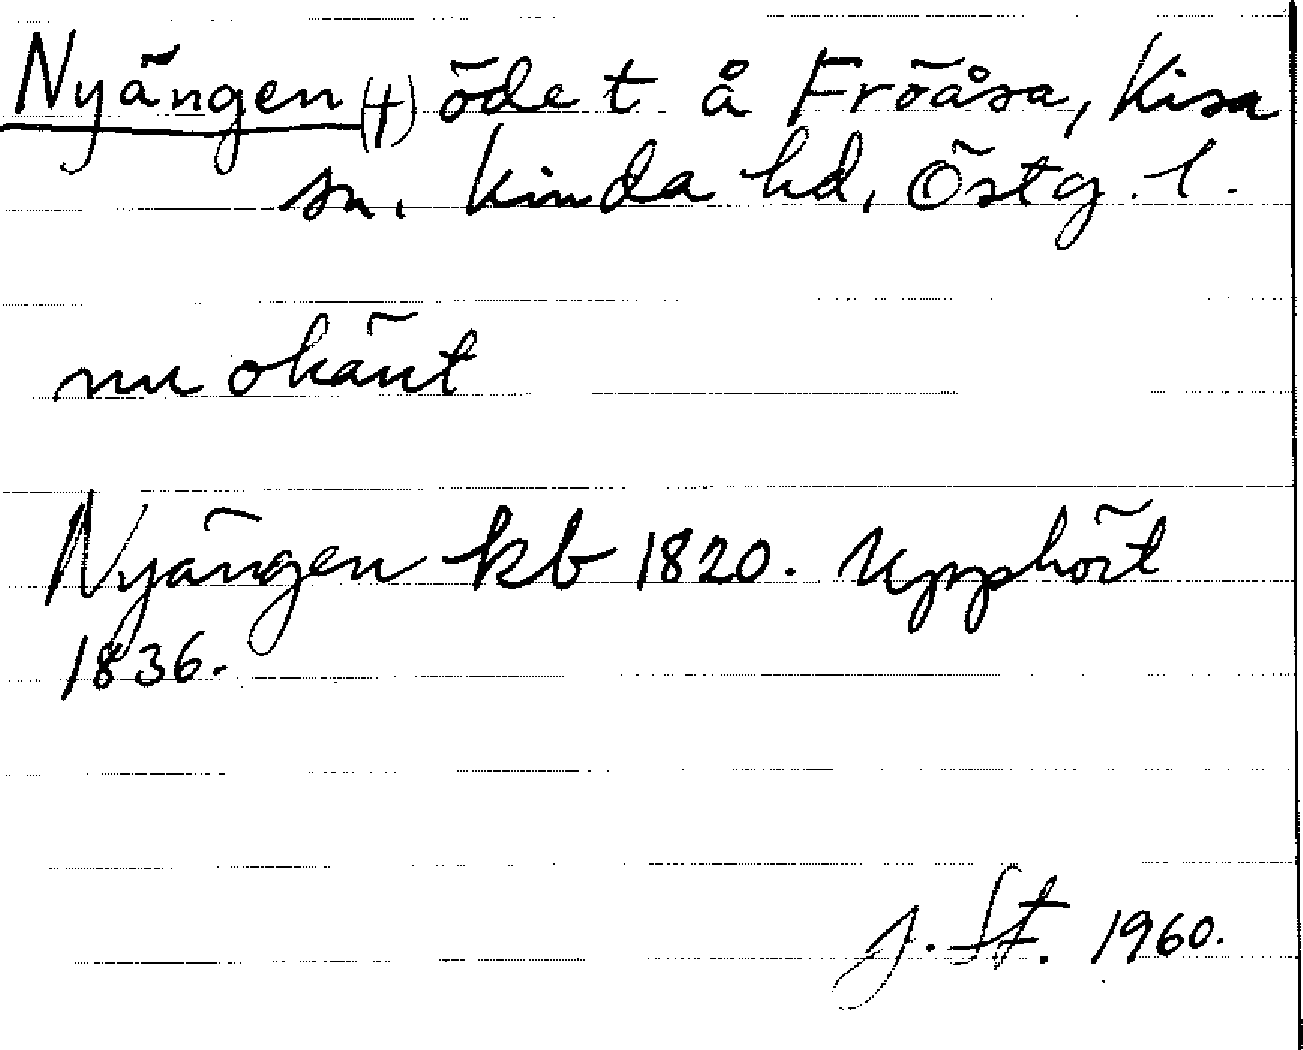 Nyängen (†) öde t å Fröåsa, Kisa
sn, Kinda hd, Östg. l.
nu okänt
Nyängen kb 1820. Upphört
1836.
J. St. 1960.